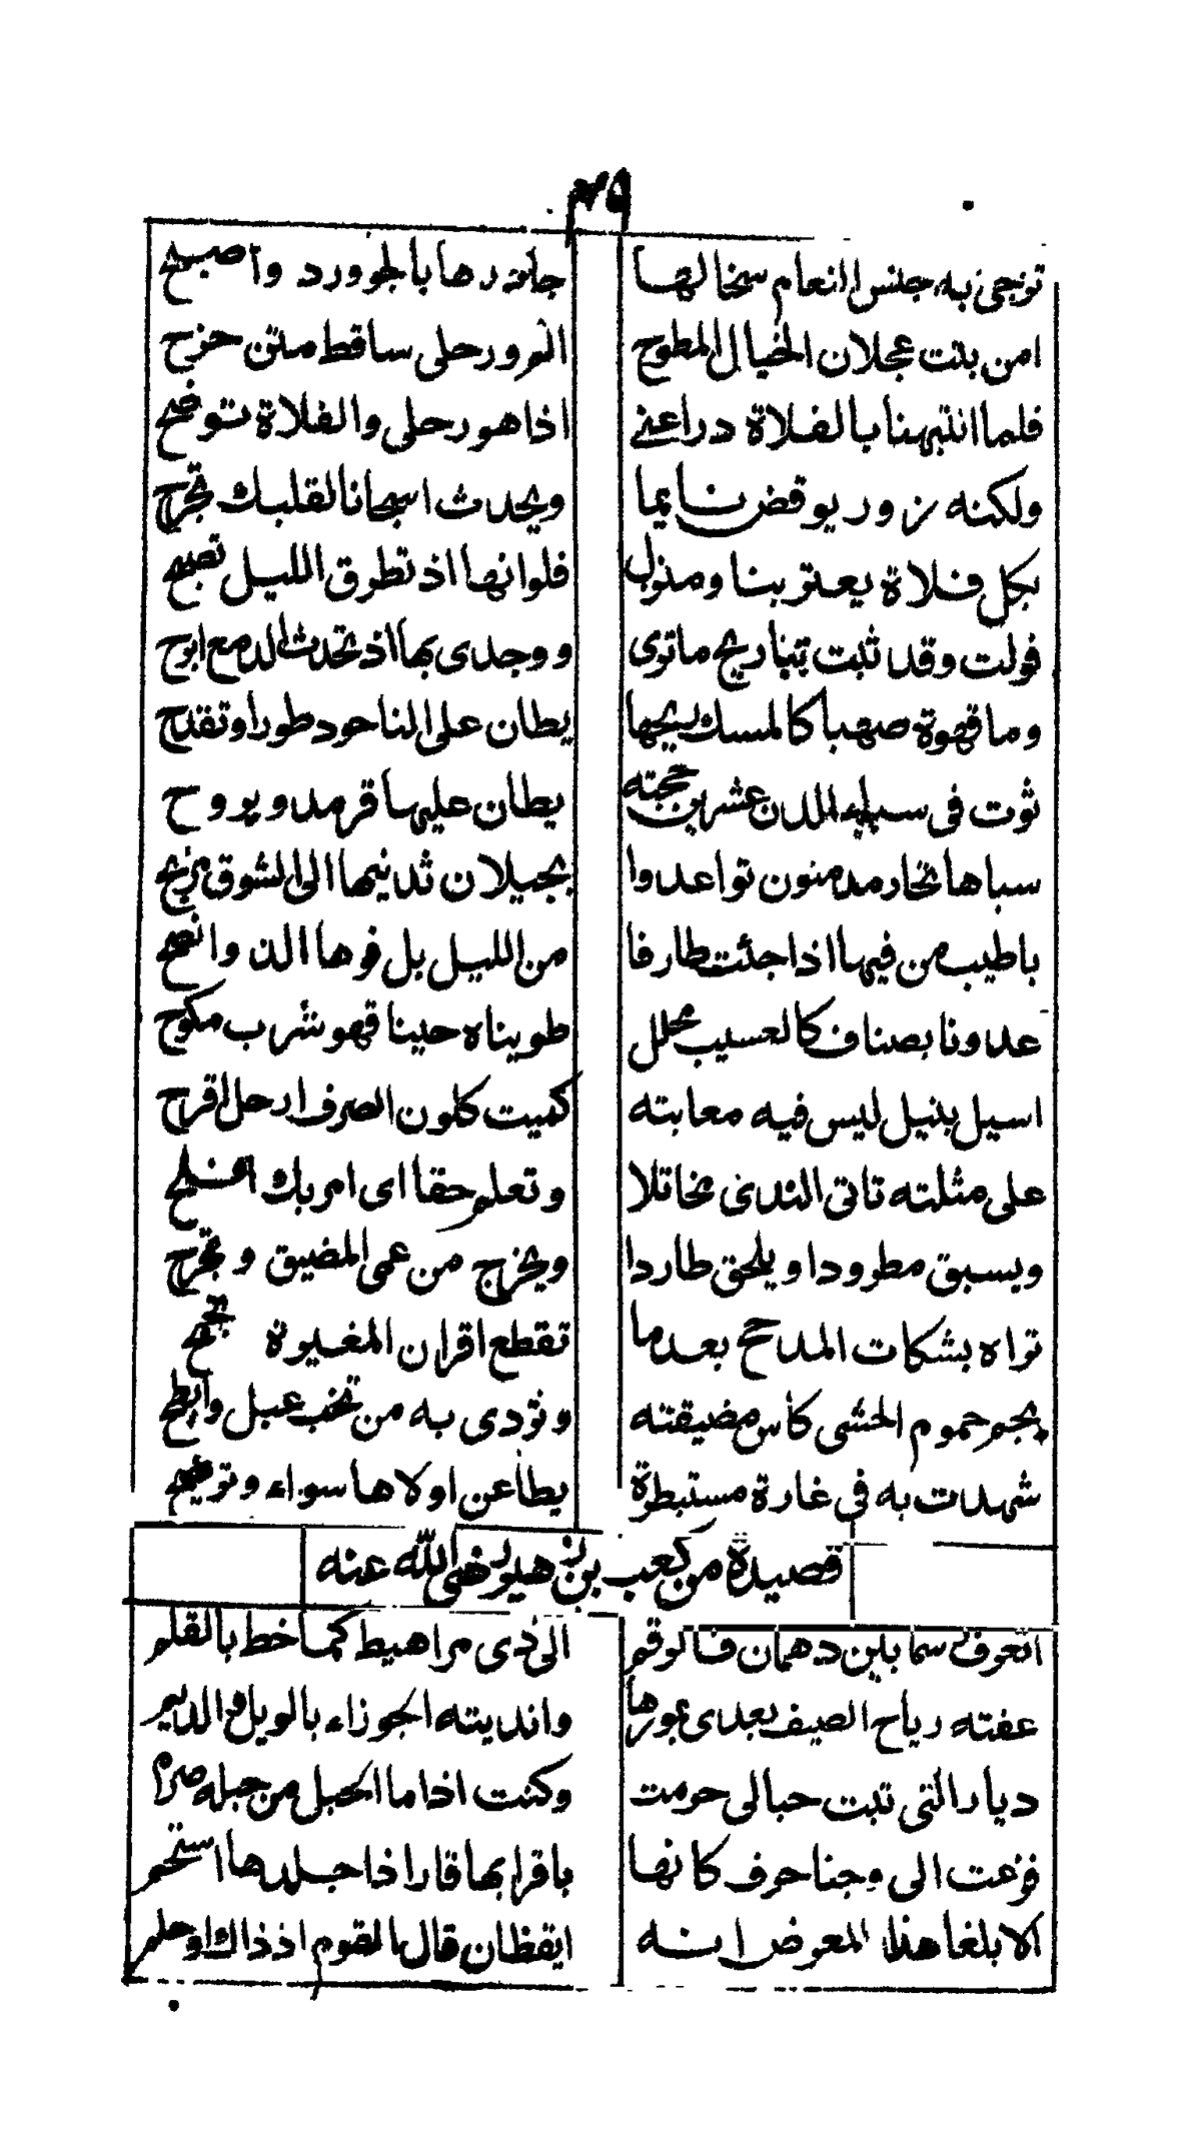 تزجی به خنس النعام سخالها جاذرها بالجو ورد وأصبح
امن بنت عجلان الخیال المطوح الم ورحلی ساقط متزحزح
فلما انتبهنا بالفلاة دراعنی اذا هو رحلی والفلاة توضح
ولکنه زور یوقض نایما ویحدث اسجانا لقلبك تجرح
بکل فلاة یعتربنا ومنزل فلوانها اذ تطرق اللیل تصبح
فولت وقد ثبت تباریح ماتری ووجدی بها اذ تحدث الدمع ابرح
وما قهوة صهبا کالمسك ریحها یطان علی الناحود طورا وتقدح
ثوت فی سباء الدن عشرین حجته یطان علیها قرمد ویروح
سباها تجار مدمنون تواعدوا بجیلان تدنیها الی الشوق مزبح
باطیب من فیها اذا جئت طارقا من اللیل بل فوها الذ وانصح
عدونا بصناف کالعسیب محلل طویناه حینا قهو شرب مکوح
اسیل بنیل لیس فیه معابته کمیت کلون الصرف ارحل اقرح
علی مثلته تاتی الندی مخاتلا وتعلم حقا ای امریك افلح
ویسبق مطرودا ویلحق طاردا ویخرج من عمی المضیق وتجرح
تراه بشکات المدحج بعدما تقطع اقران المغیرة یجمح
یجم حموم الحشی کاس مضیقته وتردی به من تحت عبل وابطح
شهدت به فی غارة مستبطرة یطاعن اولاها سواء وتوضح
قصیدة من کعب بن زهیر رضی الله عنه
اتعرف رسما بین دهمان فالرقم الی ذی مراهیط کما خط بالقلم
عفته ریاح الصیف بعدی بمورها واندیته الجوزاء بالوبل والدیم
دیار التی تبت حبالی حرمت وکنت اذا ما الحبل من حبله صرم
فزعت الی وجنا حرف کانها باقرابها قارا ذا جلدها استحم
الا بلغا هذا المعرض انه ایقظان قال القوم اذ ذاك او حلم